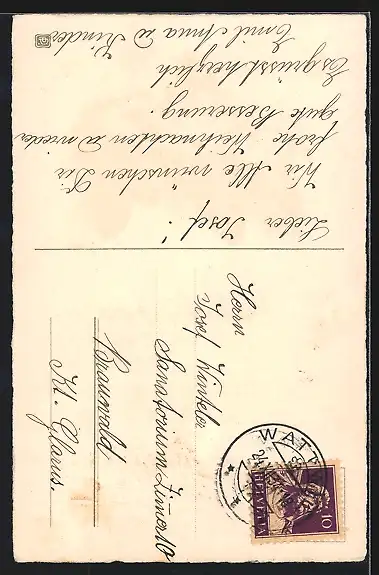 Lieber Josef!
Wir Alle wünschen Dir
frohe Weihnachten u wieder
gute Besserung.
Es grüsst herzlich
Emil Anna u Kinder
Herrn
Josef Winkler
Sanatorium Zimer 10
Braunwald
Kt. Glarus.
WATTWIL
HELVETIA
10